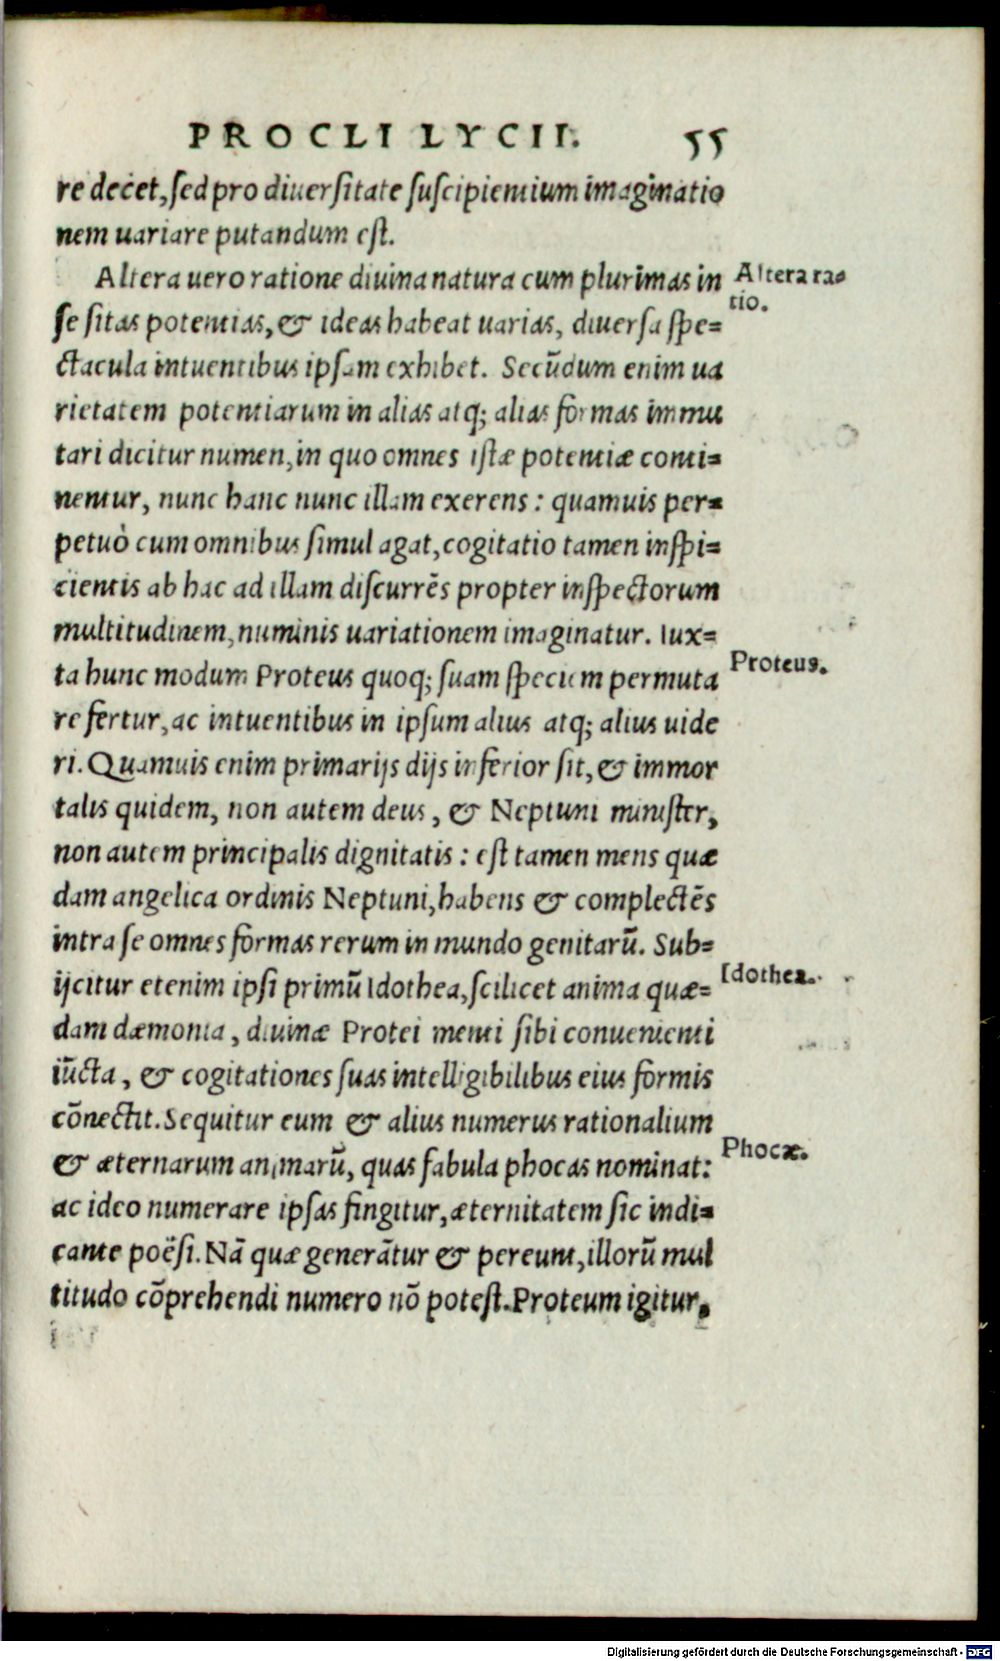 PROCLI LYCII. 55
re decet, sed pro diuersitate suscipientium imaginatio
nem uariare putandum est.
Altera uero ratione diuina natura cum plurimas in
Altera ra=
tio.
se sitas potentias, & ideas habeat uarias, diuersa spe=
ctacula intuentibus ipsam exhibet. Secũdum enim ua
rietatem potentiarum in alias atq; alias formas immu
tari dicitur numen, in quo omnes istæ potentiæ conti=
nentur, nunc hanc nunc illam exerens: quamuis per=
petuò cum omnibus simul agat, cogitatio tamen inspi=
cientis ab hac ad illam discurrẽs propter inspectorum
multitudinem, numinis uariationem imaginatur. Iux=
ta hunc modum Proteus quoq; suam speciem permuta
Proteus.
re fertur, ac intuentibus in ipsum alius atq; alius uide
ri. Quamuis enim primarijs dijs inferior sit, & immor
talis quidem, non autem deus, & Neptuni minister,
non autem principalis dignitatis: est tamen mens quæ
dam angelica ordinis Neptuni, habens & complectẽs
intra se omnes formas rerum in mundo genitarũ. Sub=
ijcitur etenim ipsi primũ Idothea, scilicet anima quæ=
Idothea.
dam dæmonia, diuinæ Protei menti sibi conuenienti
iũcta, & cogitationes suas intelligibilibus eius formis
cõnectit. Sequitur eum & alius numerus rationalium
& æternarum animarũ, quas fabula phocas nominat:
Phocæ.
ac ideo numerare ipsas fingitur, æternitatem sic indi=
cante poësi. Nã quæ generãtur & pereunt, illorũ mul
titudo cõprehendi numero nõ potest. Proteum igitur,
Digitalisierung gefördert durch die Deutsche Forschungsgemeinschaft - DFG